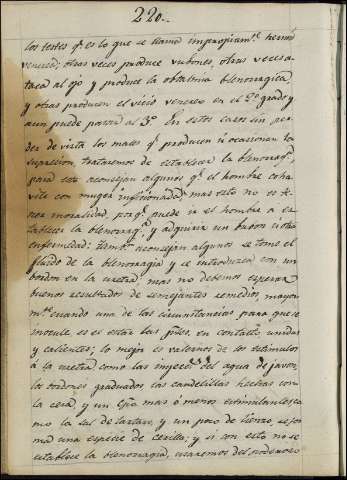 220..
los testes q.e es lo que se llama impropiam.te hernia
venerea; otras veces produce bubones, otras veces a-
taca al ojo y produce la obtalmia blenorragica,
y otras producen el vicio venereo en el 2.o grado y
aun puede pasar al 3.o En estos casos sin per-
der de vista los males q.e producen ú ocasionan la
supresion, trataremos de establecer la blenorrag.a,
para esto aconsejan algunos q.e el hombre coha-
vite con muger inficionada, mas esto no es te-
ner moralidad, porq.e puede ir el hombre a es-
tablecer la blenorrag.a y adquirir un bubon ú otra
enfermedad: tambn aconsejan algunos se tome el
fluido de la blenorragia y se introduzca con un
bordon en la uretra, mas no debemos esperar
buenos resultados de semejantes remedios, mayor-
m.te cuando una de las circunstancias para que se
inocule es el estar las ptes. en contacto unidas
y calientes; lo mejor es valernos de los estimulos
á la uretra como las inyecc.s del agua de javon,
los bordones graduados, las candelillas hechas con
la cera, y un mas ó menos estimulante
como la sal de tartaro, y un poco de lienzo, se for-
ma una especie de cerilla; y si con esto no se
establece la blenorragia, usaremos del poderoso